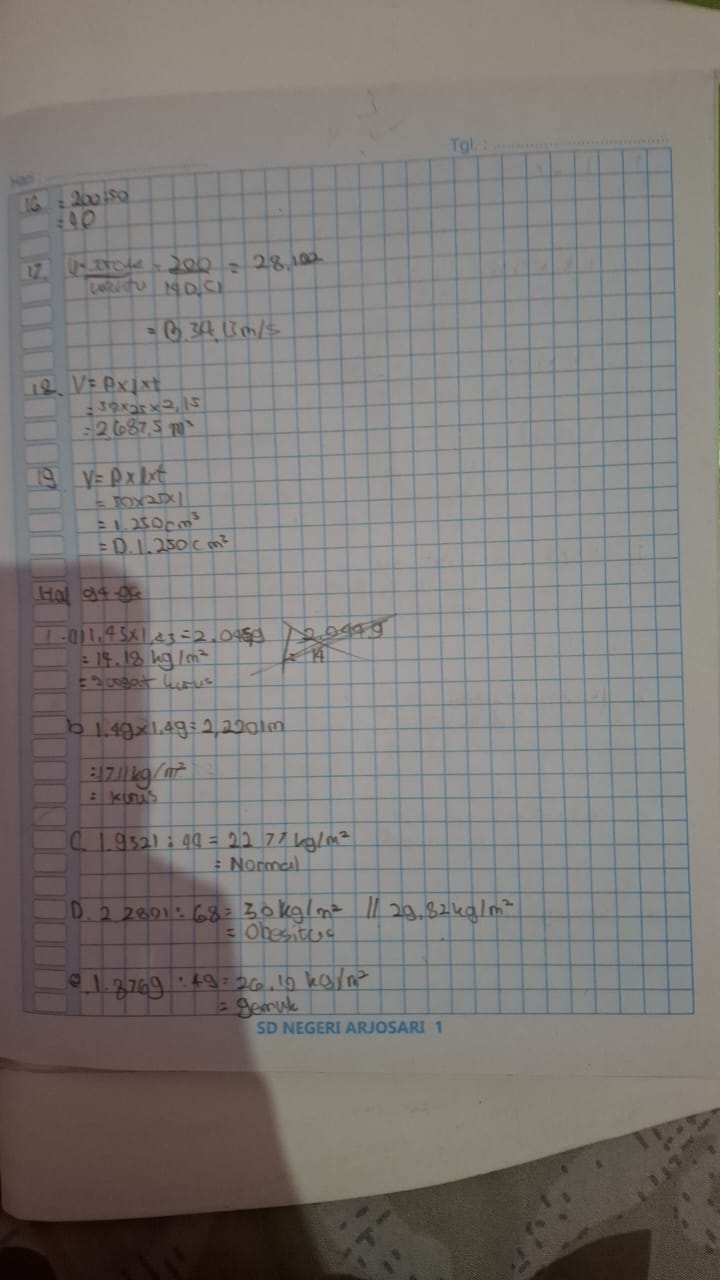 Hari
Tgl. :
16 = 200:50
= 40
17. = 200 = 28,
waktu 140,51
= B. 34,13 m/s
18. V = P x l x t
= 50x25x2,15
= 2.687,5 m³
19 V = P x l x t
= 50x25x1
= 1.250 cm³
= D. 1.250 cm³
Hal 94-95
1. a) 1,43 = 2.0449 2.0449
= 14.18 kg/m² 14
= Sangat kurus
b 1.49x1.49 = 2,2201m
= 17.11 kg/m²
= kurus
C. 1.9321 : 44 = 22 77 kg/m²
= Normal
D. 2 2801 : 68 = 30 kg/m² // 29.82 kg/m²
= Obesitas
e. 1.8769 : 49 = 26.10 kg/m²
= gemuk
SD NEGERI ARJOSARI 1